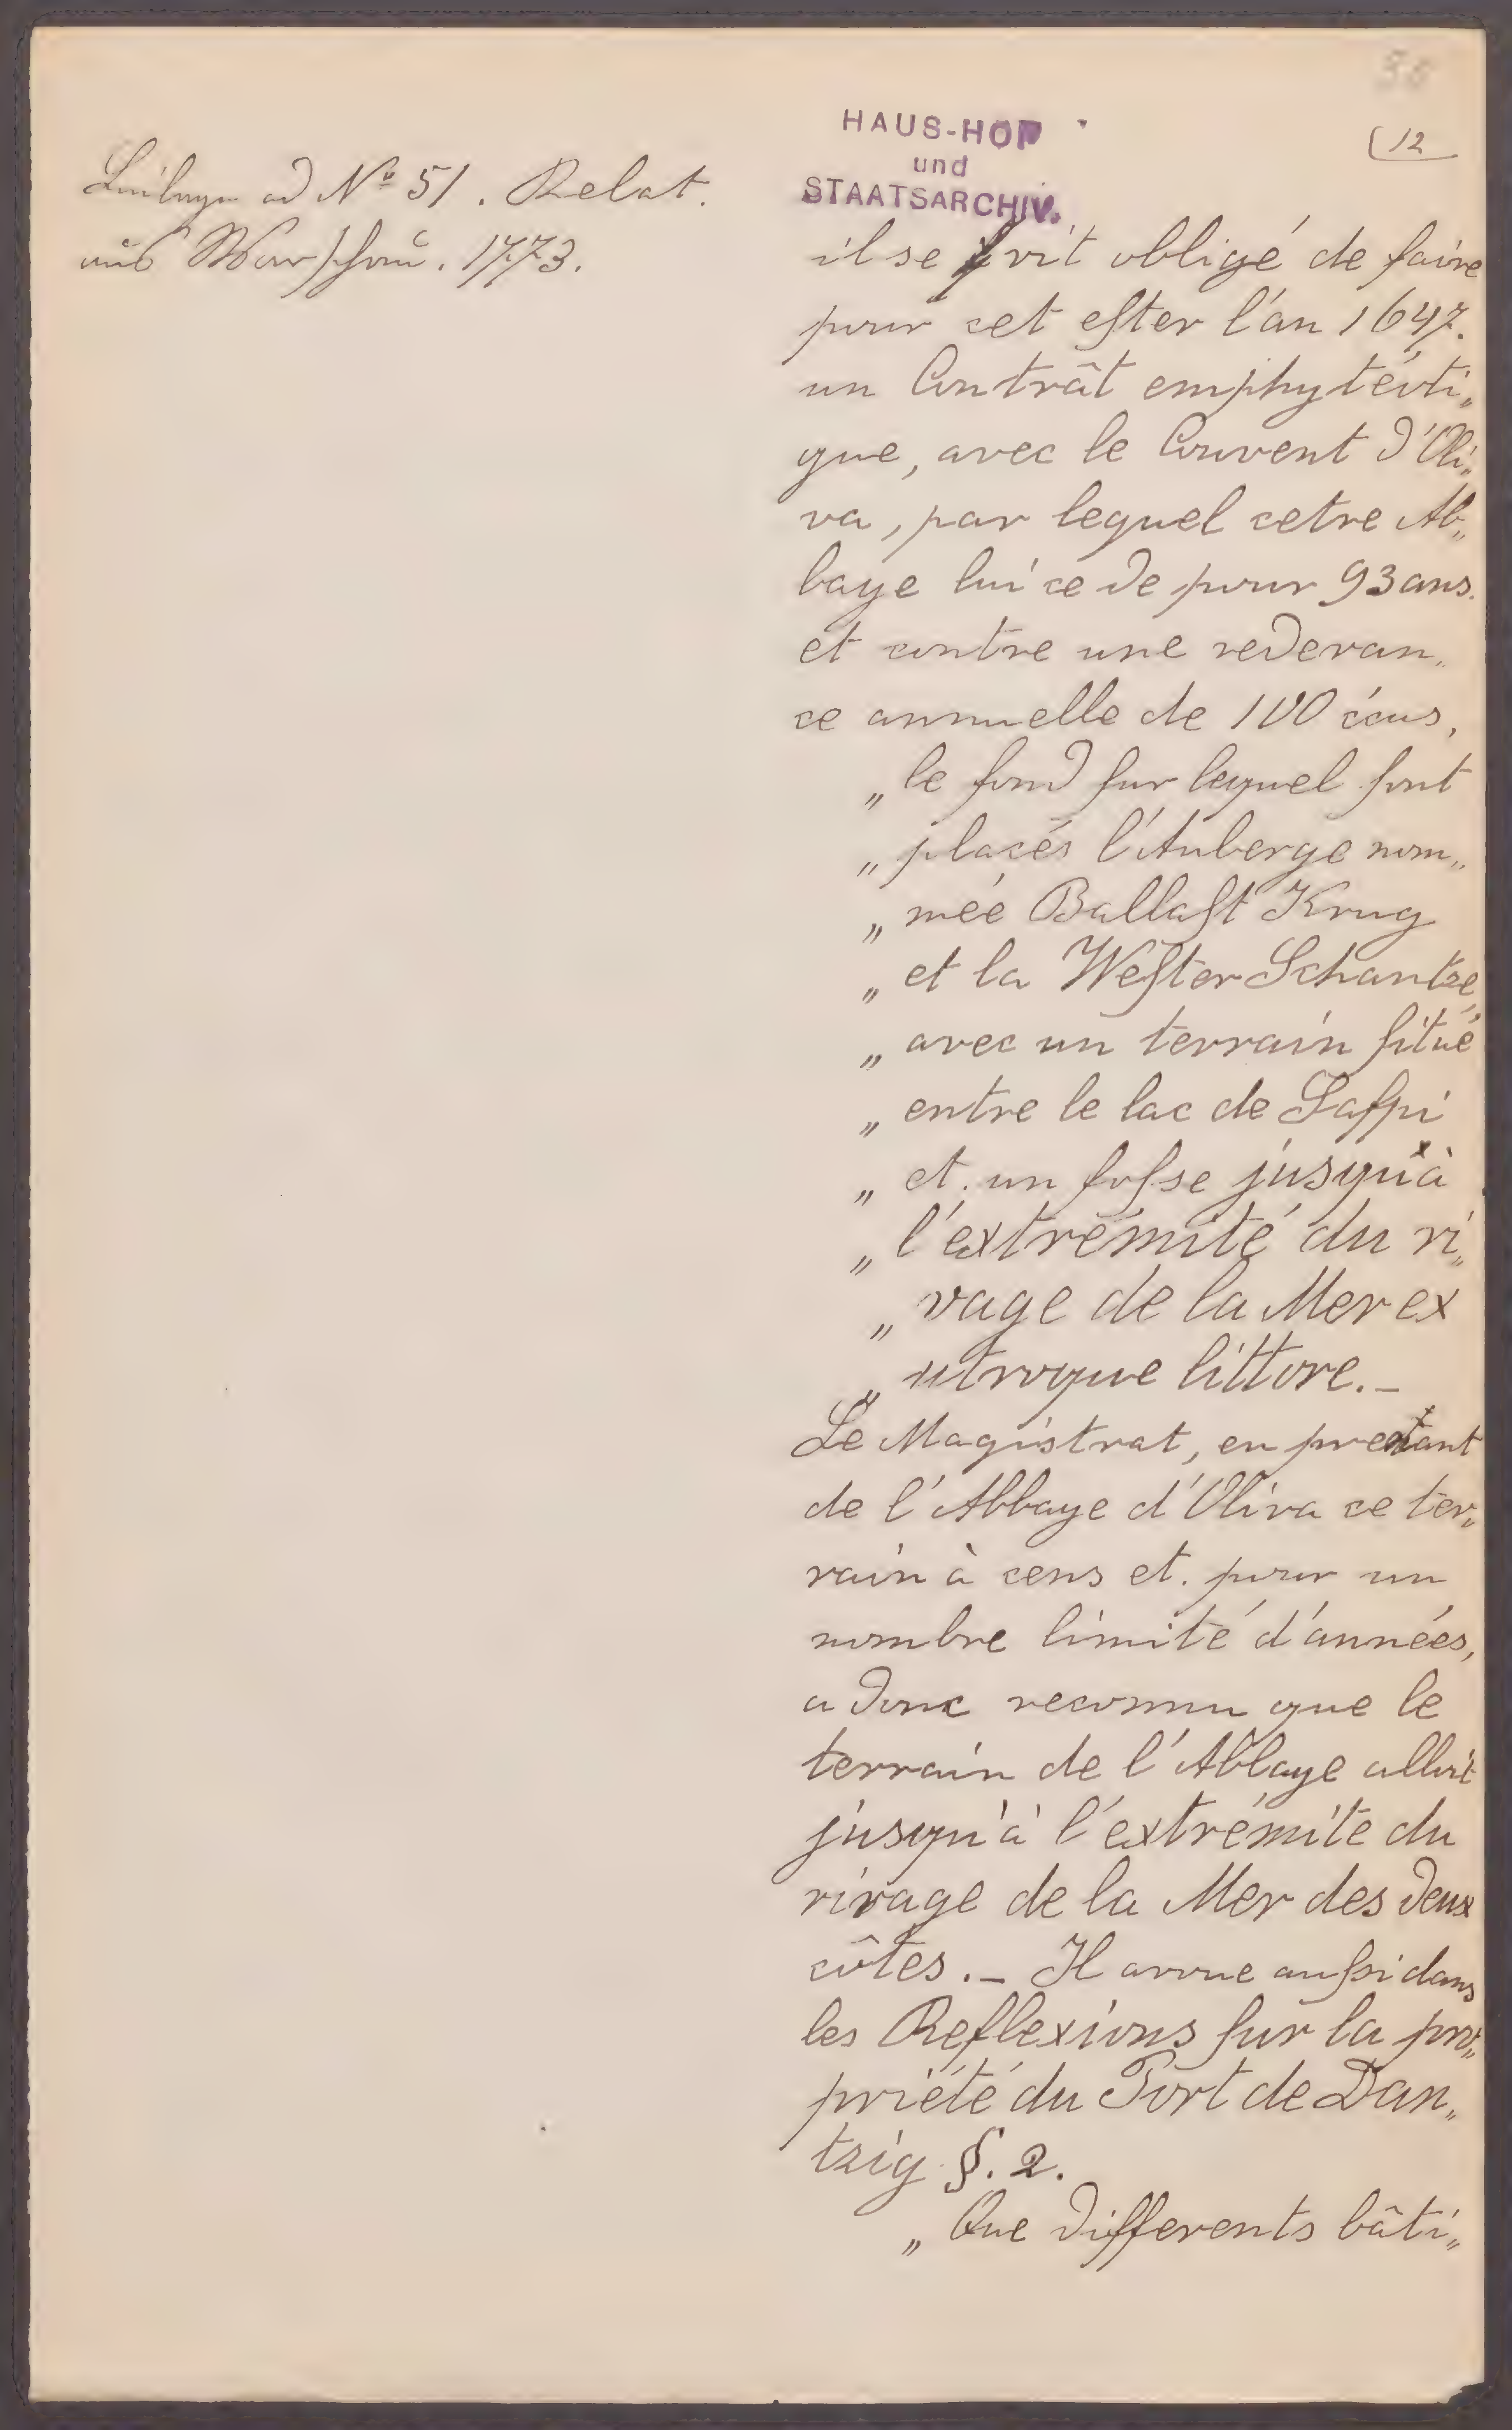 12
HAUS-HOF
und
STAATSARCHIV.
Beilagen ad № 51. Relat.
aus Warschau. 1773.
il se vit obligé de faire
pour cet effter l'an 1647.
un Contrât emphytévti„
que, avec le Couvent d'Oli„
va, par lequel cetre Ab„
baye lui cede pour 93 ans.
et contre une redevan„
ce annuelle de 100 écus,
„ le fond sur lequel sont
„ placés l'Auberge nom„
„ mée Ballast Krug
„ et la Wester Schantze,
„ avec un terrain situé
„ entre le lac de Saspi
„ et. un fosse jusqu'à
„ l'extrémité du ri„
„ vage de la Mer ex
„ utroque littore._
Le Magistrat, en prenant
de l'Abbaye d'Oliva ce ter„
rain à cens et. pour un
nombre limité d'années,
a donc reconnu que le
terrain de l'Abbaye alloit
jusqu'à l'extrémité du
rivage de la Mer des deux
côtes._ Il avoue aussi dans
les Reflexions sur la pro„
priété du Port de Dan„
tzig §. 2.
„ Que differents bâti„